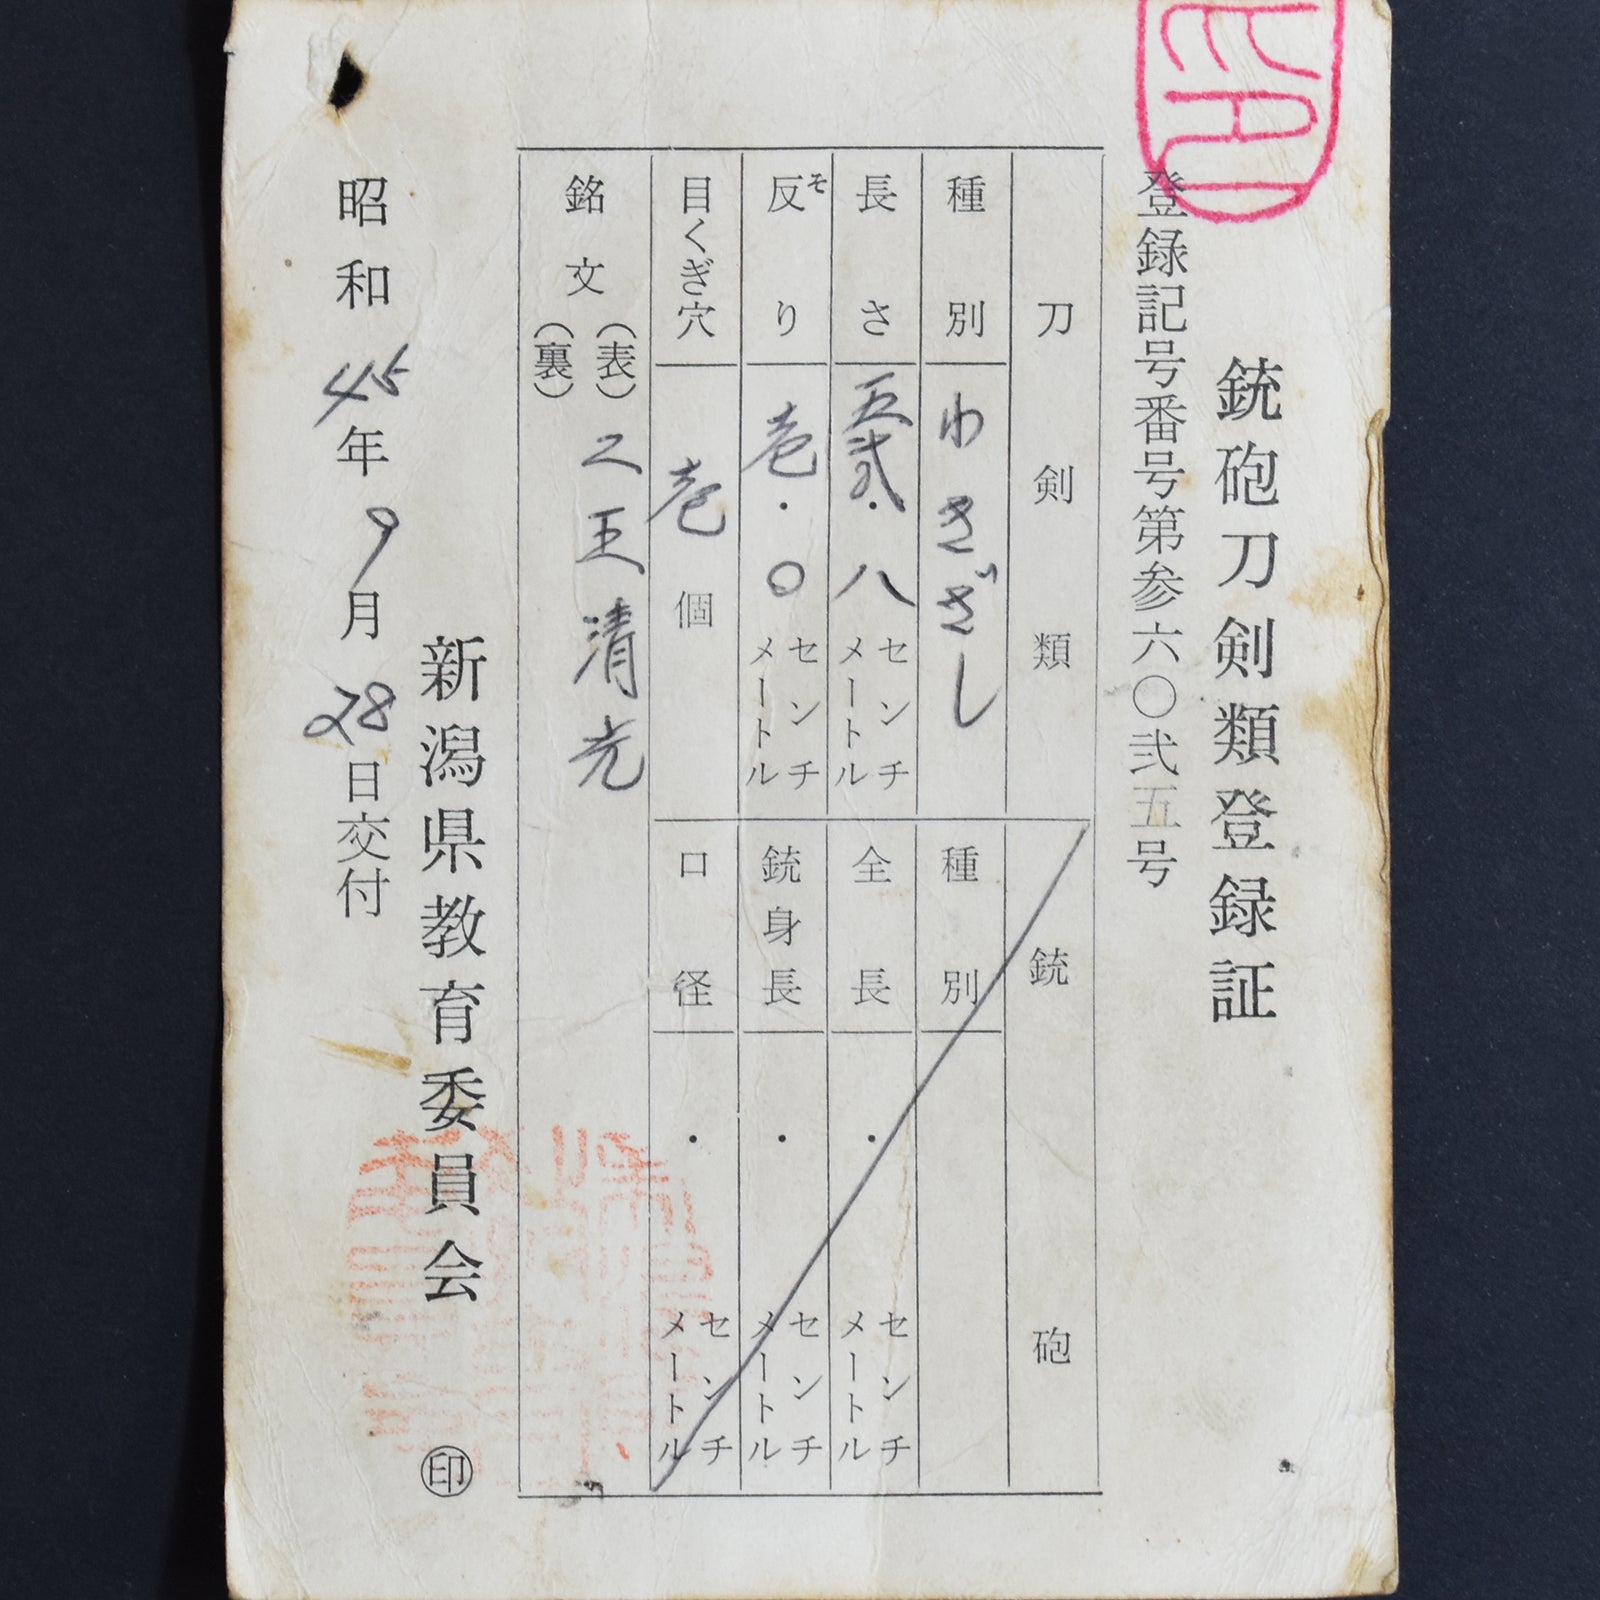 銃砲刀剣類登録証
登録記号番号第参六〇弐五号
刀剣類
種別 わきざし
長さ 五弐・八 センチメートル
反り 壱・〇 センチメートル
そ
目くぎ穴 壱個
銘文 (表) 二王清光
(裏)
銃砲
種別
全長 ・ センチメートル
銃身長 ・ センチメートル
口径 ・ センチメートル
新潟県教育委員会 印
昭和45年9月28日交付